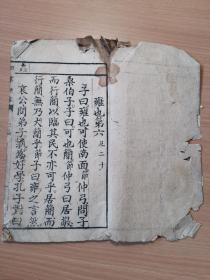 雍也第六 凡二十
子曰雍也可使南面節仲弓問子
桑伯子子曰可也簡節仲弓曰居敬
而行簡以臨其民不亦可乎居簡而
行簡無乃大簡乎節子曰雍之言然
哀公問弟子孰為好學孔子對曰